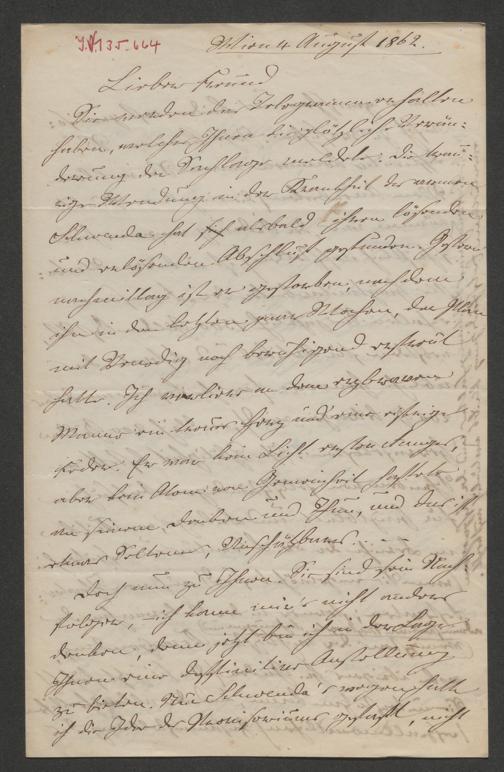 I.N. 135.664
Wien 4 August 1862.
Lieber Freund
Sie werden das Telegramm erhalten
haben, welches Ihnen die plötzliche Verän-
derung der Sachlage meldete. Die trau-
rige Wendung in der Krankheit des armen
Schwenda hat sich alsbald ihren lösenden
und erlösenden Abschluß gefunden. Gestern
nachmittag ist er gestorben, nachdem
ihn in den letzten paar Wochen, der Plan
mit Venedig noch beruhigend erfreut
hatte. Ich verliere an dem erzbraven
Manne ein treues Herz und eine eifrige
Feder. Er war kein Licht ersten Ranges,
aber kein Atom von Gemeinheit haftete
an seinem Denken und Thun, und das ist
etwas Seltenes, Unschätzbares. - - -
Doch nun zu Ihnen. Sie sind sein Nach-
folger, – ich kann mir's nicht anders
denken, denn jetzt bin ich in der Lage
Ihnen eine definitive Anstellung
zu bieten. Nur Schwenda's wegen hatte
ich die Idee des Provisoriums gefaßt, nicht